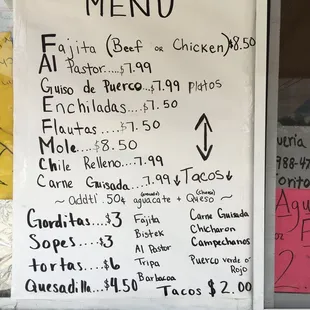 MENU
Fajita (Beef or Chicken) $8.50
Al Pastor....$7.99
Guiso de Puerco...$7.99 platos
Enchiladas...$7.50
Flautas ....$7.50
Mole....$8.50
Chile Relleno...7.99
Carne Guisada...7.99 ↓ Tacos ↓
~ Addtl .50¢ aguacate + Queso ~
Gorditas...$3 Fajita Carne Guisada
Sopes...$3 Bistek Chicharon
Al Pastor Campechanos
tortas...$6 Tripa Puerco verde or
Barbacoa Rojo
Quesadilla..$4.50 Tacos $2.00
ueria
988-47
Torito
Agu
F
2